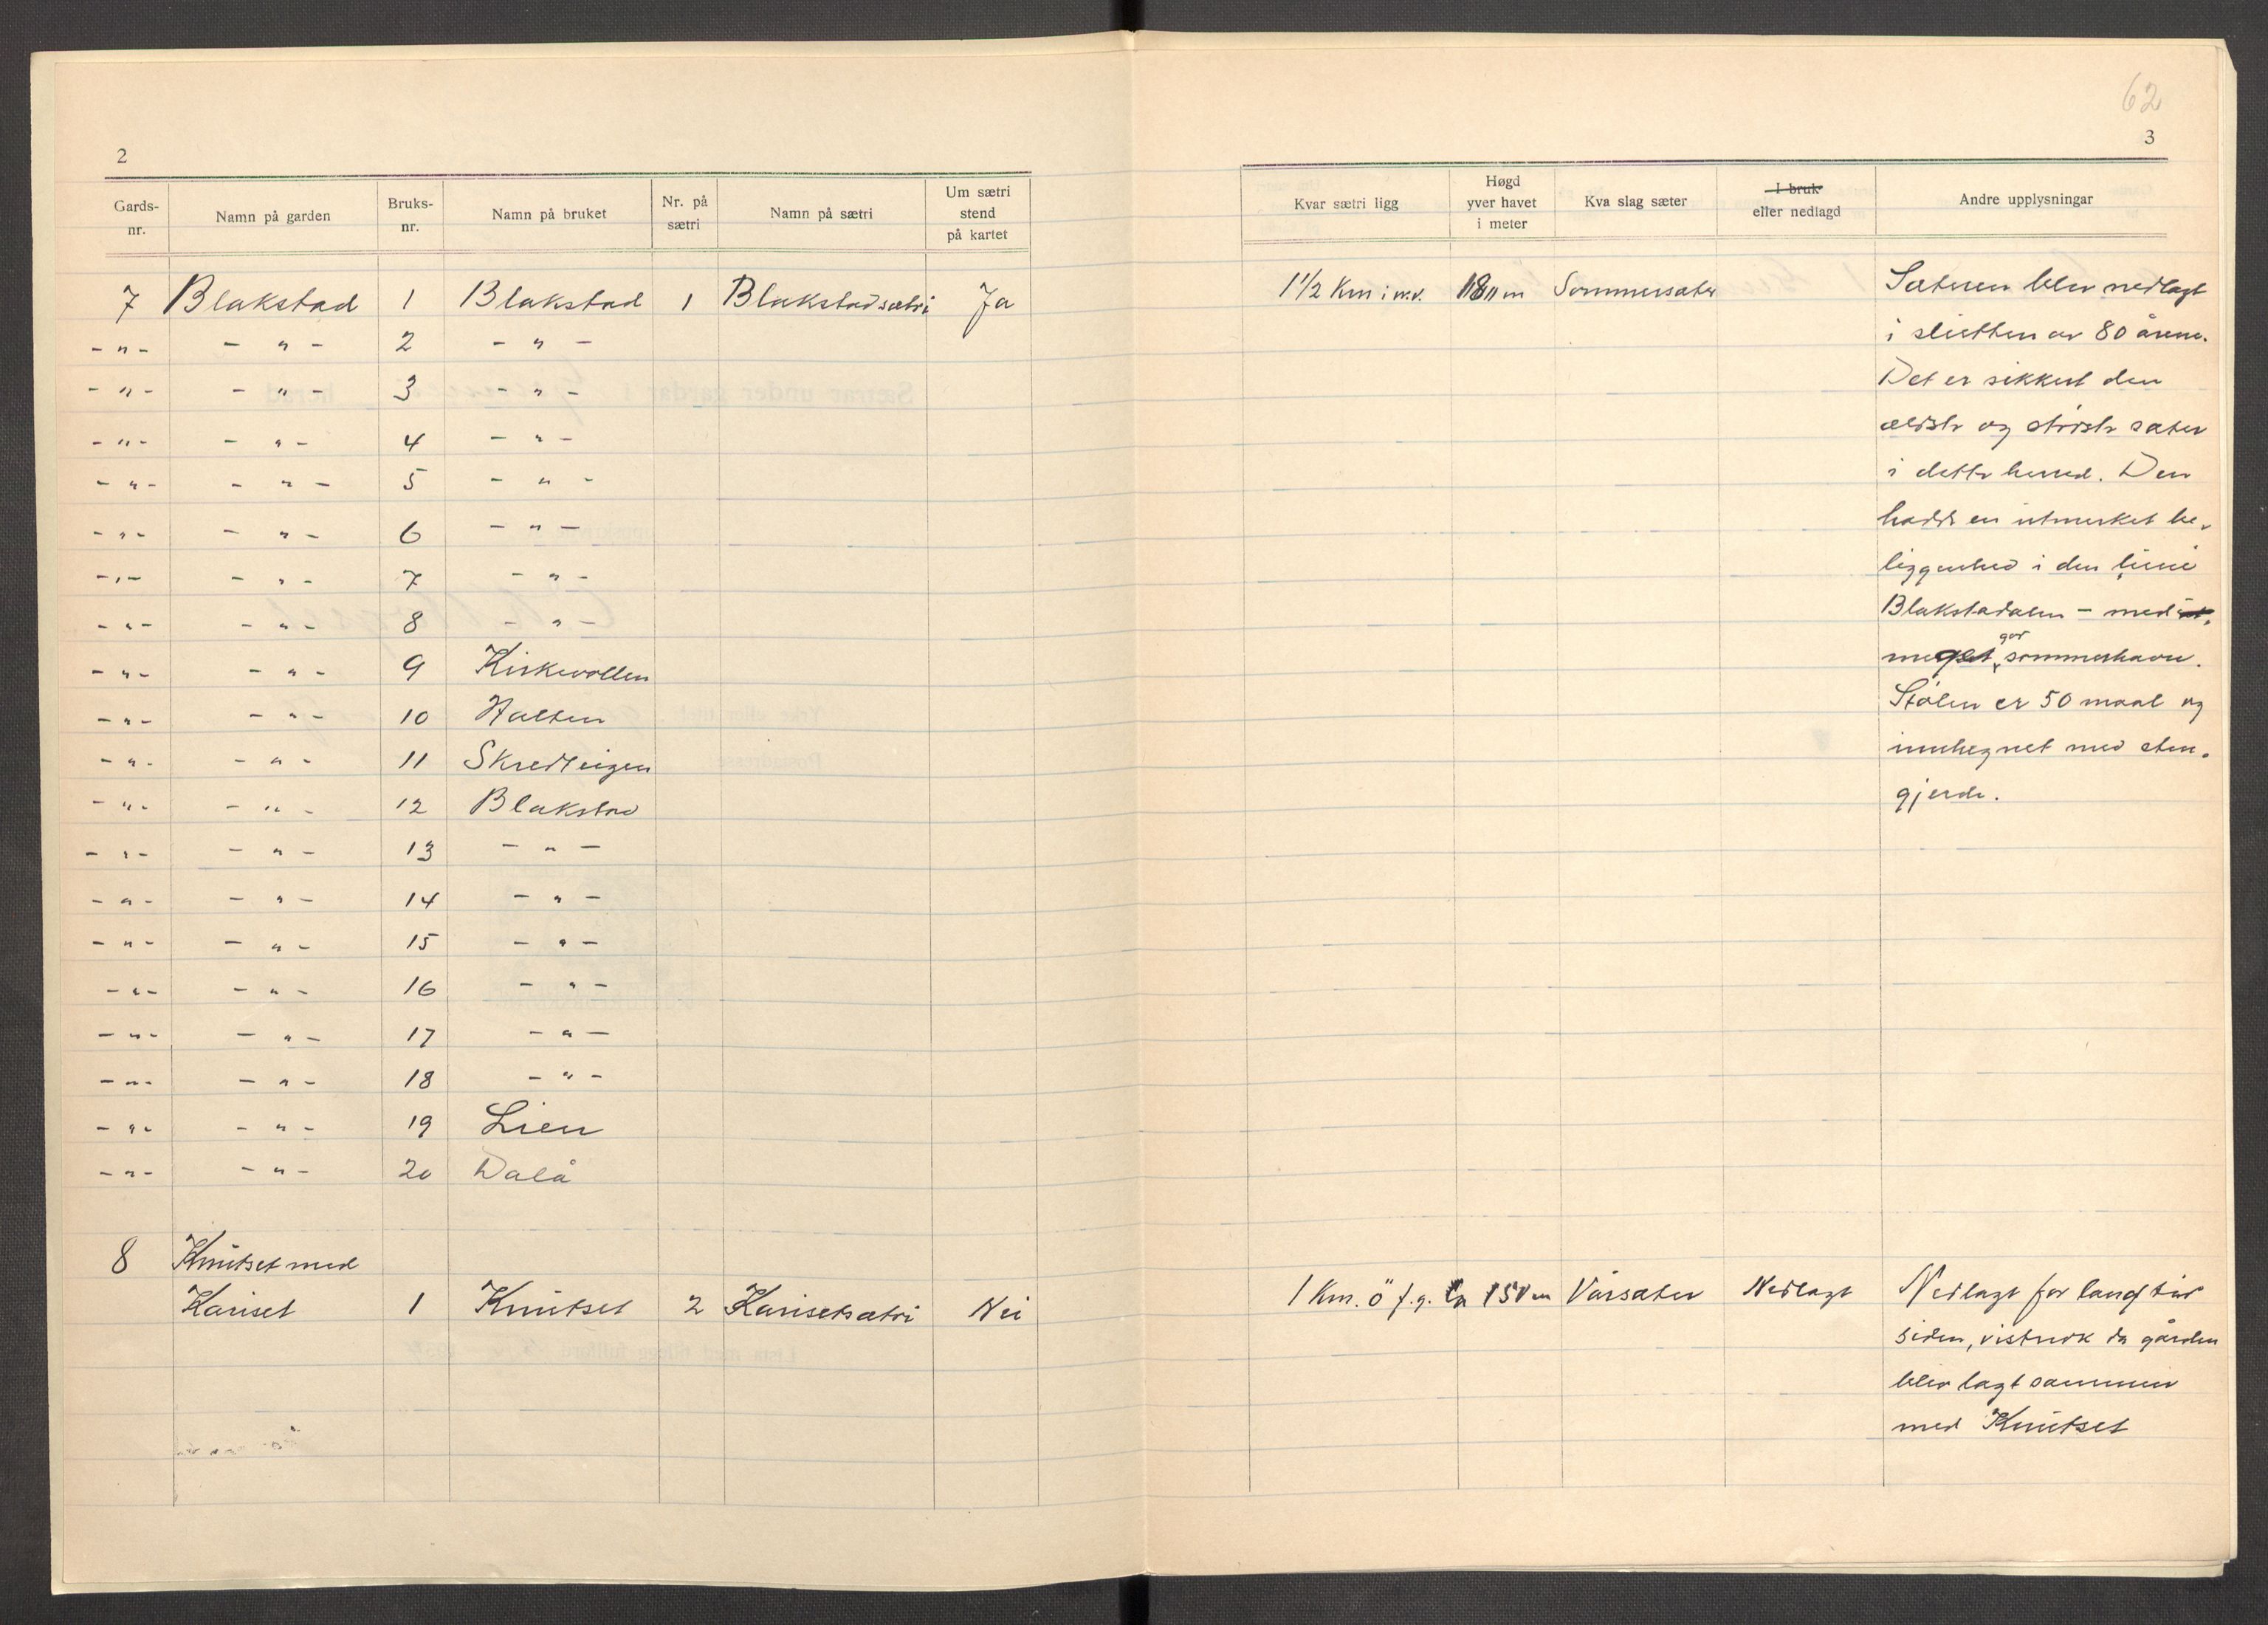 62
2
3
Gards-nr. Namn på garden Bruks-nr. Namn på bruket Nr. på sætri Namn på sætri Um sætri stend på kartet
Kvar sætri ligg Høgd yver havet i meter Kva slag sæter I bruk eller nedlagd Andre upplysningar
7 Blakstad 1 Blakstad 1 Blakstadsætri Ja
- " - - " - 2 - " -
- " - - " - 3 - " -
- " - - " - 4 - " -
- " - - " - 5 - " -
- " - - " - 6 - " -
- " - - " - 7 - " -
- " - - " - 8 - " -
- " - - " - 9 Kirkevollen
- " - - " - 10 Halten
- " - - " - 11 Skredteigen
- " - - " - 12 Blakstad
- " - - " - 13 - " -
- " - - " - 14 - " -
- " - - " - 15 - " -
- " - - " - 16 - " -
- " - - " - 17 - " -
- " - - " - 18 - " -
- " - - " - 19 Lien
- " - - " - 20 Dalå
8 Knutset med
Kariset 1 Knutset 2 Karisetsætri Nei
1½ Km i n.v. Sommersæter Sæteren blev nedlagt
i slutten av 80 årene.
Det er sikkert den
ældste og største sæter
i dette herred. Den
hadde en utmerket be-
liggenhed i den lune
Blakstadalen - med
meget god sommerhavn.
Stølen er 50 maal og
innhegnet med sten-
gjerde.
1 Km. ö f. g. ca 150 m Vårsæter Nedlagt Nedlagt for lang tid
siden, vistnok da gården
blev lagt sammen
med Knutset